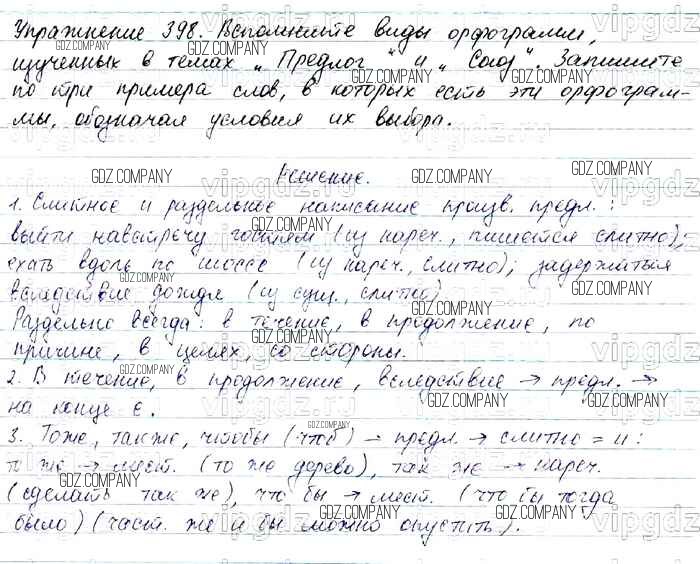 Упражнение 398. Вспомните виды орфограмм,
изученных в темах „Предлог“ и „Союз“. Запишите
по три примера слов, в которых есть эти орфограм-
мы, обозначая условия их выбора.
Решение.
1. Слитное и раздельное написание произв. предл.:
выйти навстречу гостям (из нареч., пишется слитно),
ехать вдоль по шоссе (из нареч., слитно), задержаться
вследствие дождя (из сущ., слитно)
Раздельно всегда: в течение, в продолжение, по
причине, в целях, со стороны.
2. В течение, в продолжение, вследствие → предл. →
на конце е.
3. Тоже, также, чтобы (чтоб) → предл. → слитно = и:
то же → мест. (то же дерево), так же → нареч.
(сделать так же), что бы → мест. (что бы тогда
было) (част. же и бы можно опустить).
GDZ.COMPANY
vipgdz.ru